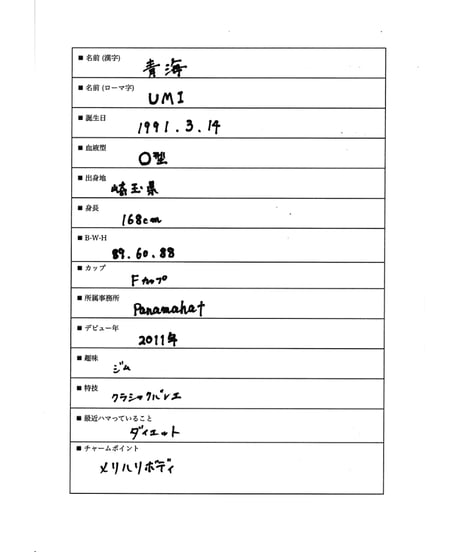 ■ 名前 (漢字)
青海
■ 名前 (ローマ字)
UMI
■ 誕生日
1991.3.14
■ 血液型
O型
■ 出身地
埼玉県
■ 身長
168cm
■ B-W-H
89.60.88
■ カップ
Fカップ
■ 所属事務所
Panamahat
■ デビュー年
2011年
■ 趣味
ジム
■ 特技
クラシックバレエ
■ 最近ハマっていること
ダイエット
■ チャームポイント
メリハリボディ